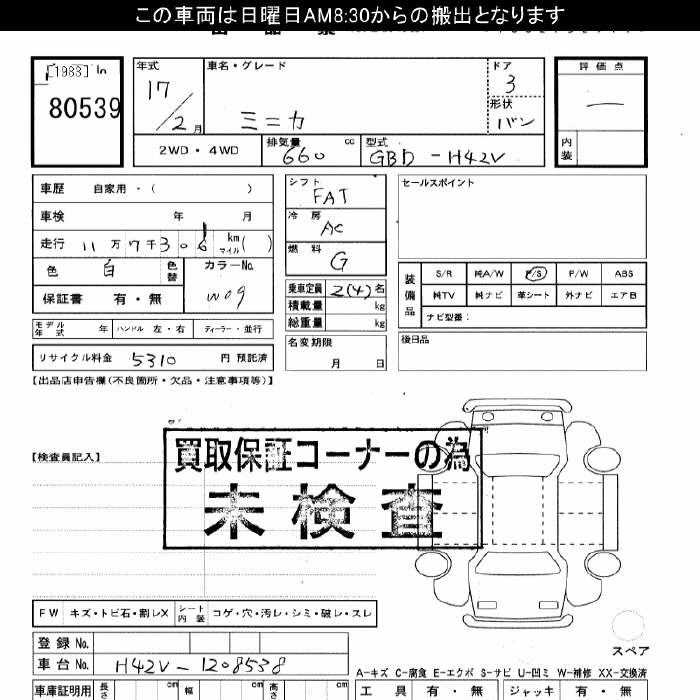 この車両は日曜日AM8:30からの搬出となります
[1983] In
80539
年式
17/2月
車名・グレード
ミニカ
ドア
3
形状
バン
評価点
—
内装
2WD・4WD
排気量 660 cc
型式 GBD-H42V
車歴 自家用・( )
車検 年 月
走行 11万7千306 km マイル ( )
色 白 色替
カラーNo. W09
保証書 有・無
シフト FAT
冷房 AC
燃料 G
乗車定員 2(4)名
積載量 kg
総重量 kg
セールスポイント
装備品
S/R 純A/W P/S P/W ABS
純TV 純ナビ 革シート 外ナビ エアB
ナビ型番:
モデル年式 年 ハンドル 左・右 ディーラー・並行
名変期限 月 日
後日品
リサイクル料金 5310 円 預託済
【出品店申告欄(不良箇所・欠品・注意事項等)】
【検査員記入】
買取保証コーナーの為
未検査
FW キズ・トビ石・割レX シート内装 コゲ・穴・汚レ・シミ・破レ・スレ
スペア
登録No.
車台No. H42V-1208538
A-キズ C-腐食 E-エクボ S-サビ U-凹ミ W-補修 XX-交換済
車庫証明用 長さ cm 幅 cm 高さ cm
工具 有・無 ジャッキ 有・無